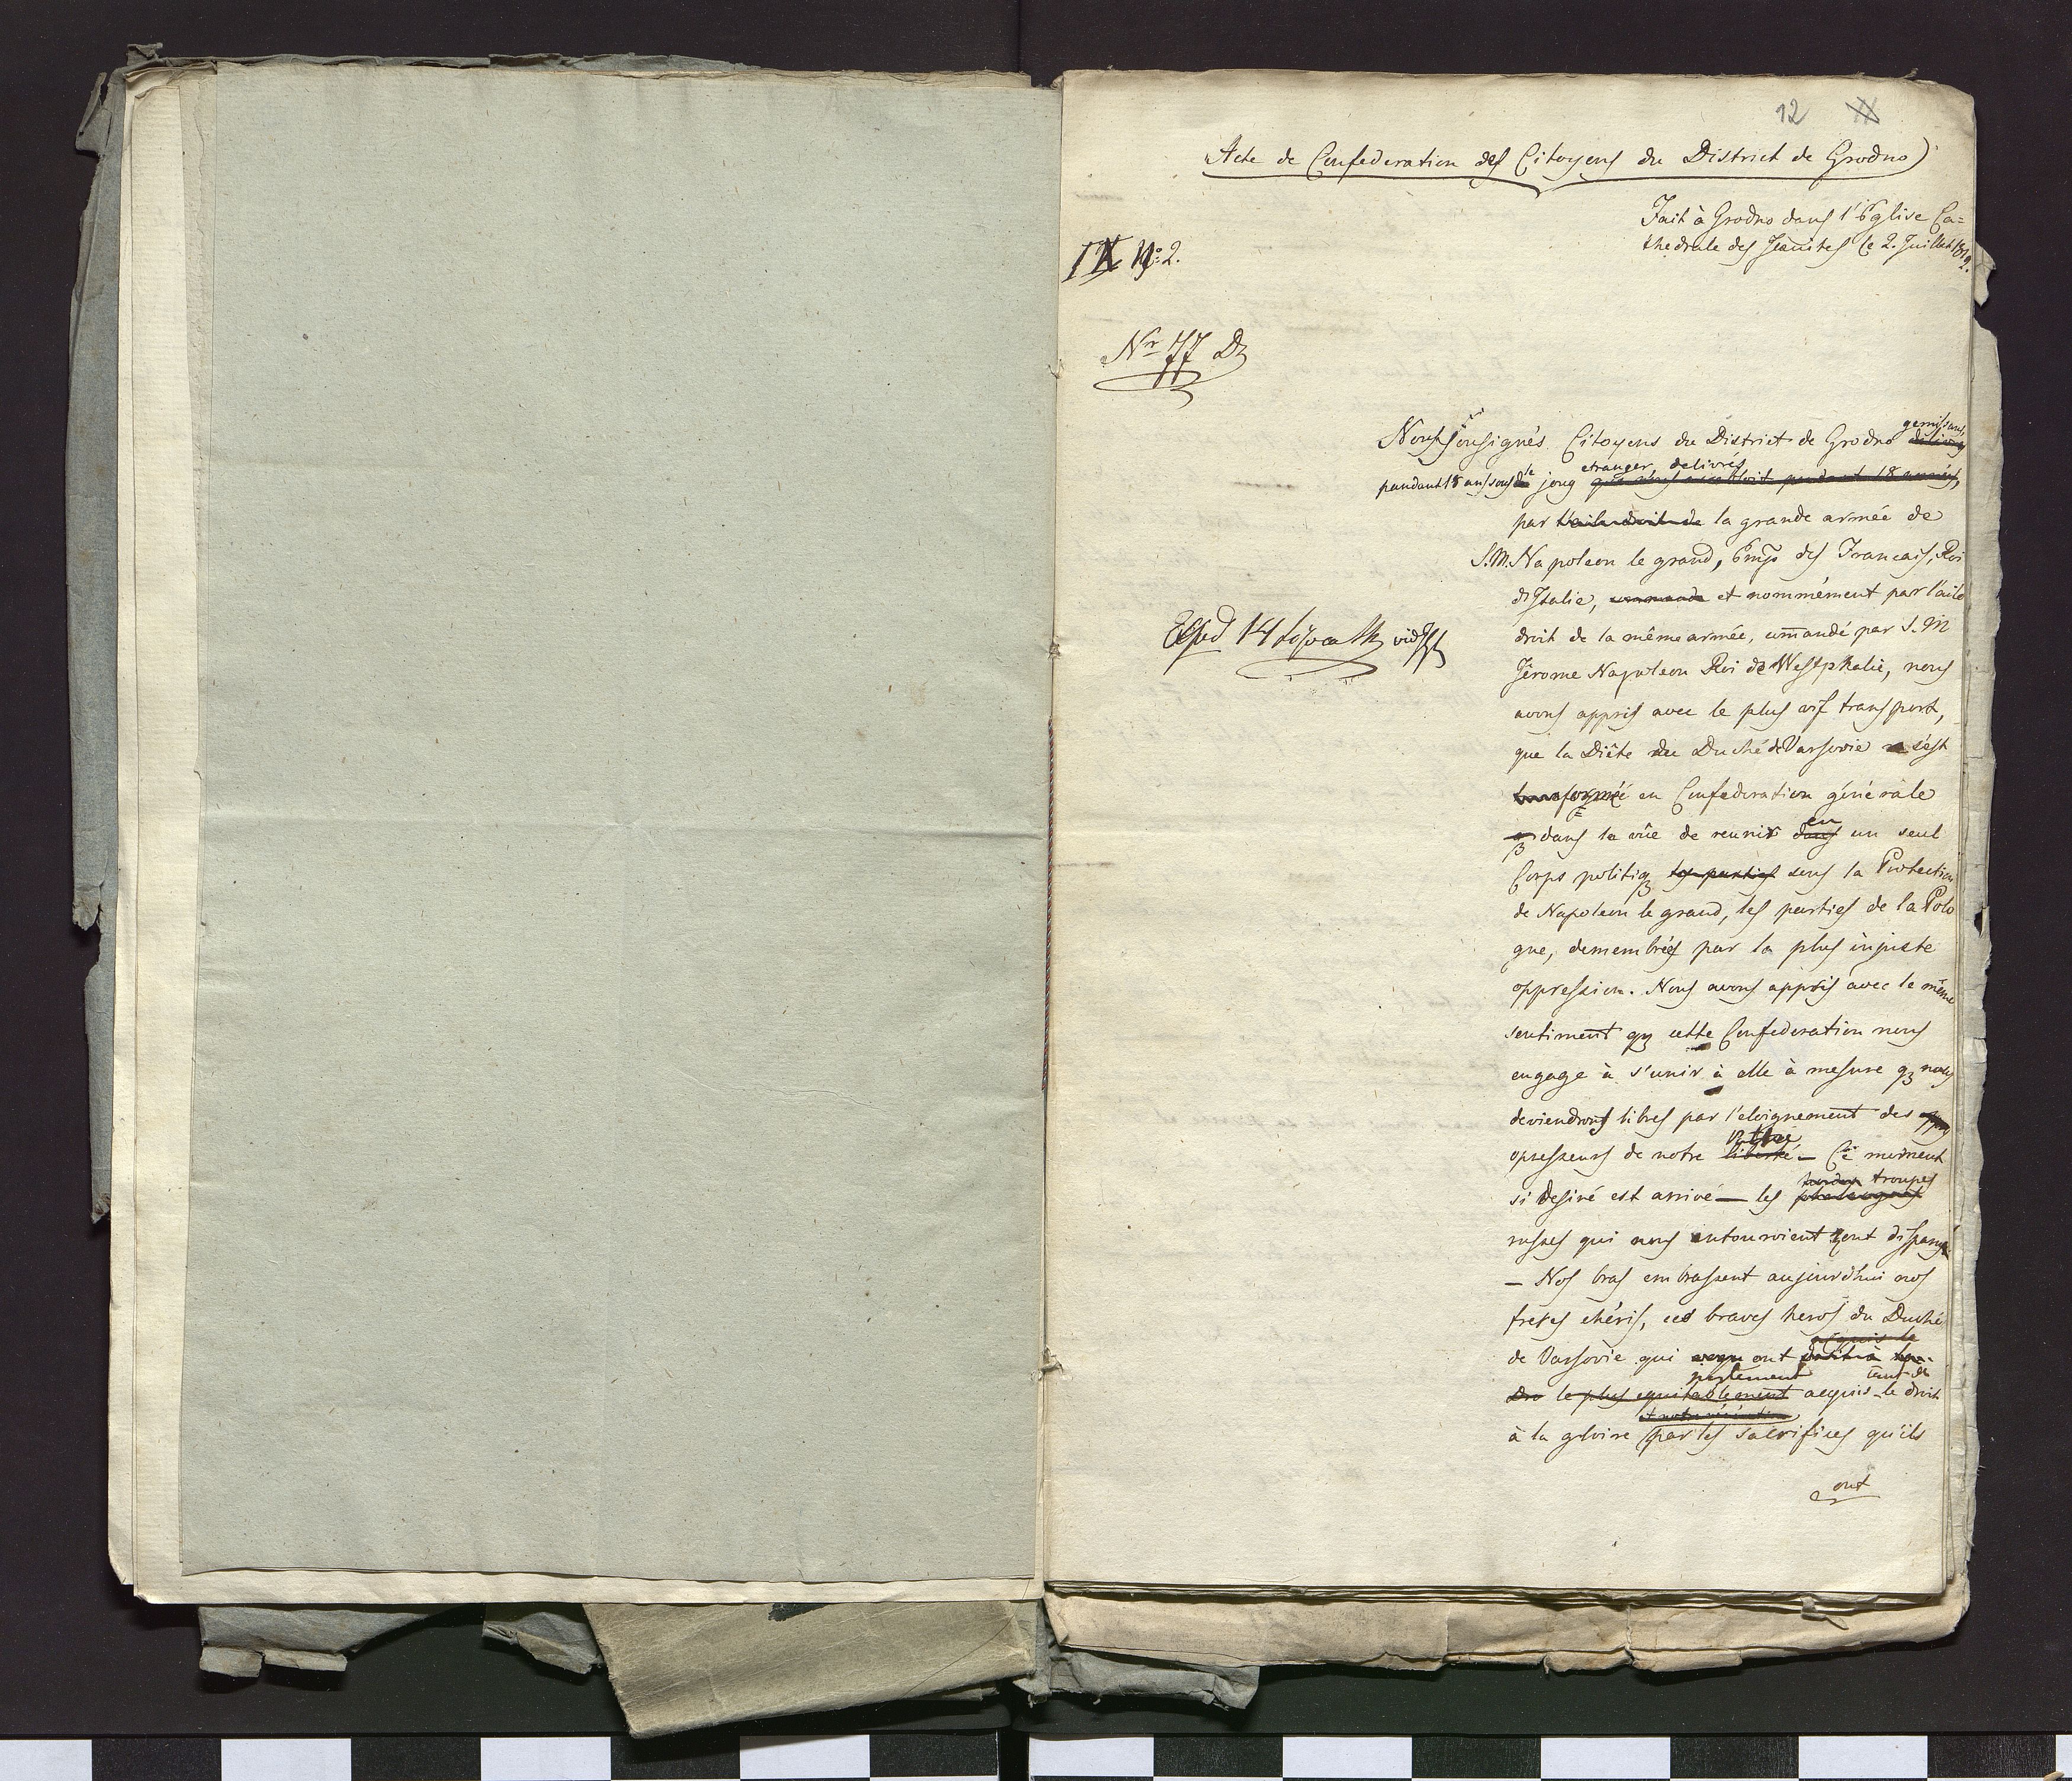 12
Acte de Confederation des Citoyens du District de Grodno
Fait à Grodno dans l'Église Ca=
thedrale des Jesuites le 2. Juillet 1812.
IX No: 2.
Nr 77 D
Nous sousignés Citoyens du District de Grodno gemissans
pendant 18 ans sous le joug etranger, delivrés que nous accabloit pendant 18 années,
par l'aile droit de la grande armée de
S.M. Napoleon le grand, Emp des Francais, Roi
d'Italie, commandé et nommément par l'aile
droit de la même armée, comandé par S. M
Jérome Napoleon Roi de Westphalie, nous
avons appris avec le plus vif transport,
que la Diête du Duché de Varsovie s'est
transformé en Confederation générale
dans la vûe de reunir dans en un seul
Corps politiq les parties sous la Protection
de Napoleon le grand, les parties de la Polo
gne, demembrées par la plus injuste
oppression. Nous avons appris avec le même
sentiment q cette Confederation nous
engage à s'unir à elle à mesure q nous
deviendrons libres par l'eloignement des
opresseurs de notre liberté – Ce moment
si desiré est arrivé — les phalanges troupes
russes qui nous entouroient sont disparus
— Nos bras embrassent aujourdhui nos
freres chéris, ces braves heros du Duché
de Varsovie qui ont acquis le
le plus equitablement justement acquis le droit
à la gloire par les sacrifices qu'ils
ont
Exped 14